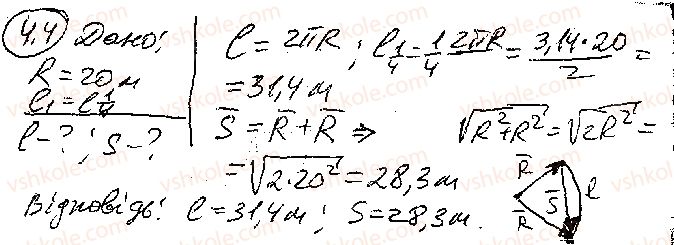 4.4 Дано:
R = 20 м
l₁ = l 1/4
l - ? ; S - ?
l = 2πR ; l 1/4 = 1/4 2πR = 3,14 • 20 / 2 =
= 31,4 м
S̅ = R̅ + R̅ ⇒ √(R² + R²) = √(2R²) =
= √(2 • 20²) = 28,3 м
R̅
R̅
S̅
l
Відповідь: l = 31,4 м ; S = 28,3 м.